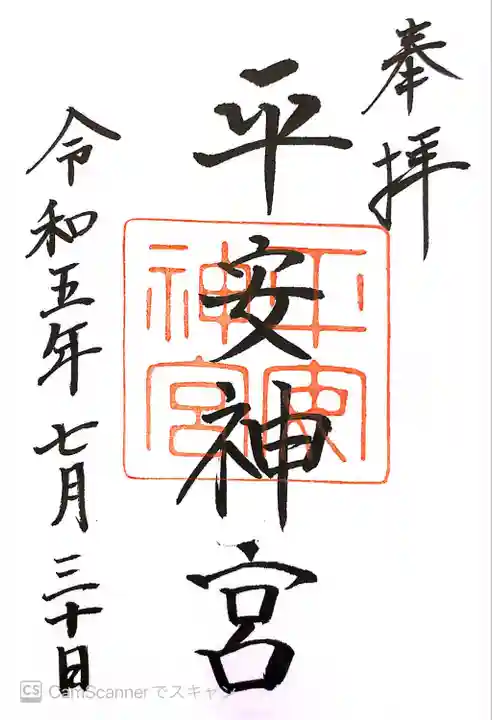 奉拝
平安神宮
平安
神宮
令和五年七月三十日
CS CamScannerでスキャン